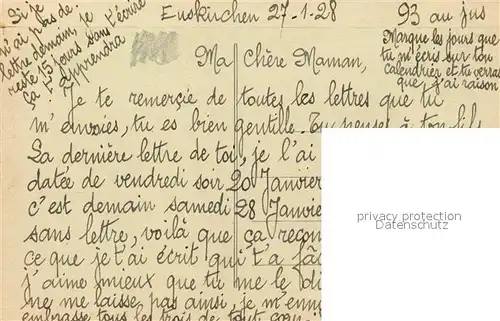 Euskirchen 27-1-28 93 au jus
Si je
n'ai pas de
lettre demain, je
reste 15 jours sans t'écrire
Ça t'apprendra
Marque les jours que
tu m'écris sur ton
calendrier et tu verras
que j'ai raison
Ma Chère Maman,
Je te remercie de toutes les lettres que tu
m'envoies, tu es bien gentille. Tu penses à ton fils
La dernière lettre de toi, je l'ai
datée de vendredi soir 20 Janvier
c'est demain samedi 28 Janvier
sans lettre, voilà que ça
ce que je t'ai écrit qui t'a
j'aime mieux que tu me le
me me laisse pas ainsi, je
embrasse tous les trois de tout
privacy protection
Datenschutz